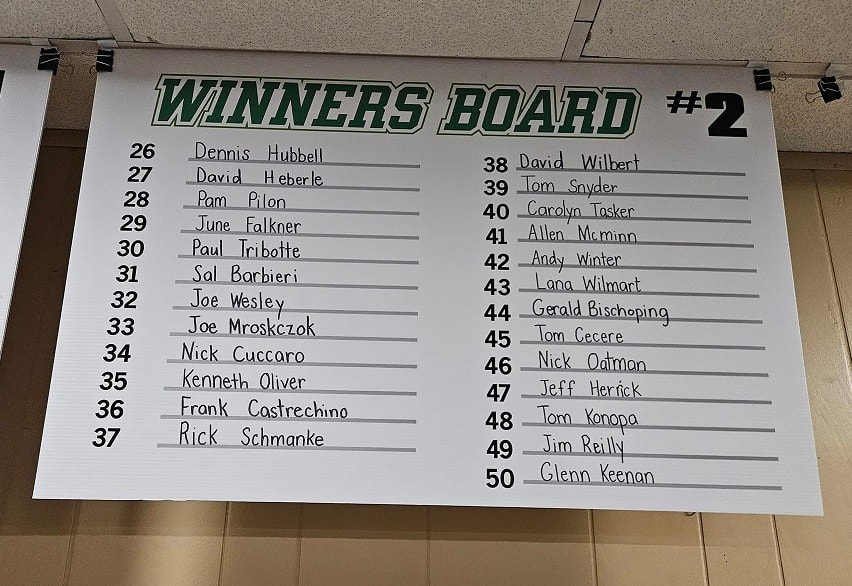 WINNERS BOARD #2
26 Dennis Hubbell
27 David Heberle
28 Pam Pilon
29 June Falkner
30 Paul Tribotte
31 Sal Barbieri
32 Joe Wesley
33 Joe Mroskczok
34 Nick Cuccaro
35 Kenneth Oliver
36 Frank Castrechino
37 Rick Schmanke
38 David Wilbert
39 Tom Snyder
40 Carolyn Tasker
41 Allen Mcminn
42 Andy Winter
43 Lana Wilmart
44 Gerald Bischoping
45 Tom Cecere
46 Nick Oatman
47 Jeff Herrick
48 Tom Konopa
49 Jim Reilly
50 Glenn Keenan